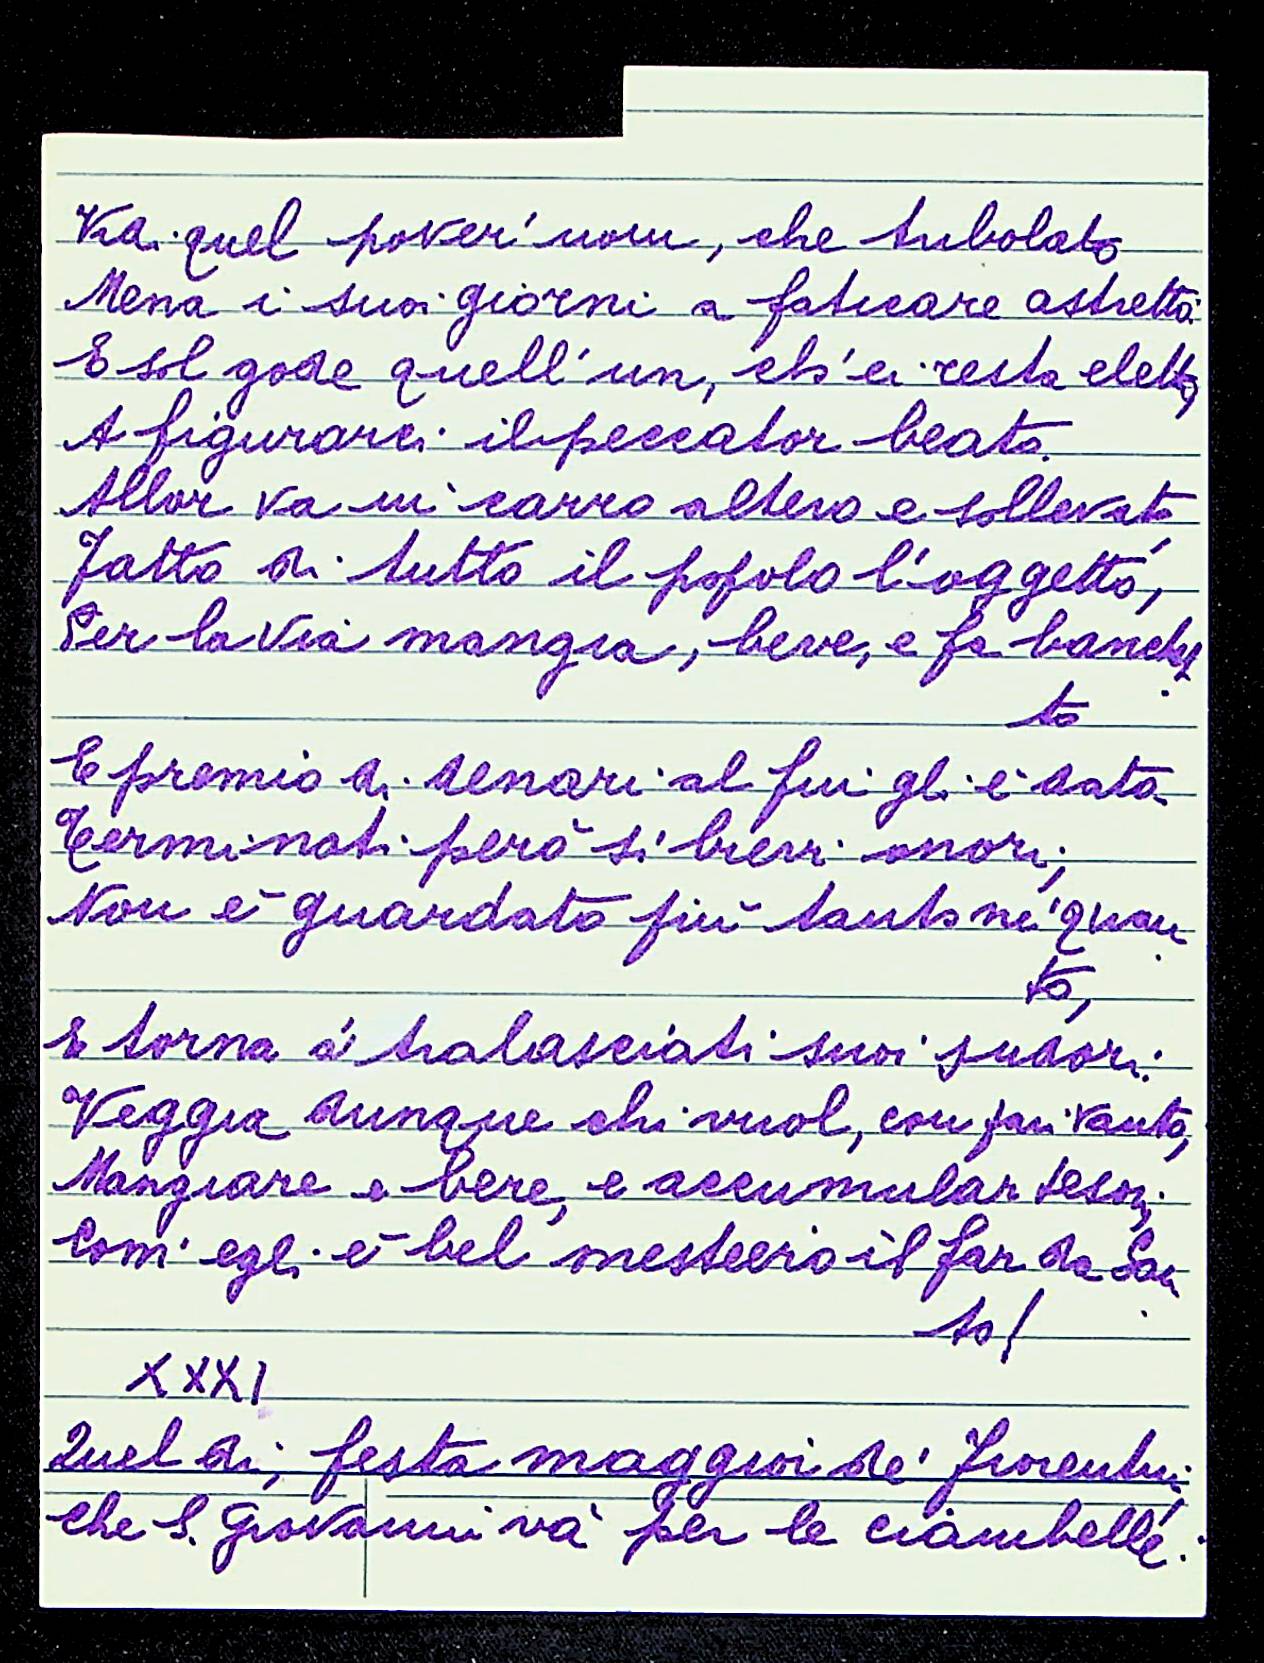 Va quel pover'uom, che tribolato
Mena i suoi giorni a faticare astretto:
E sol gode quell'un, ch'ei resta eletto,
A figurarci il peccator beato.
Allor va in carro altero e sollevato,
Fatto di tutto il popolo l'oggetto,
Per la via mangia, beve, e fa banchet
to
E premio di denari al fin gli è dato.
Terminati però sì brevi onori,
Non è guardato più tanto nè quan
to,
E torna a' tralasciati suoi sudori.
Veggia dunque chi vuol, con far vanto,
Mangiare e bere, e accumular tesori,
Com' egli è bel mestiero il far da San
to!
XXXI
Quel dì, festa maggior de' Fiorentini,
che S. Giovanni và per le ciambelle.